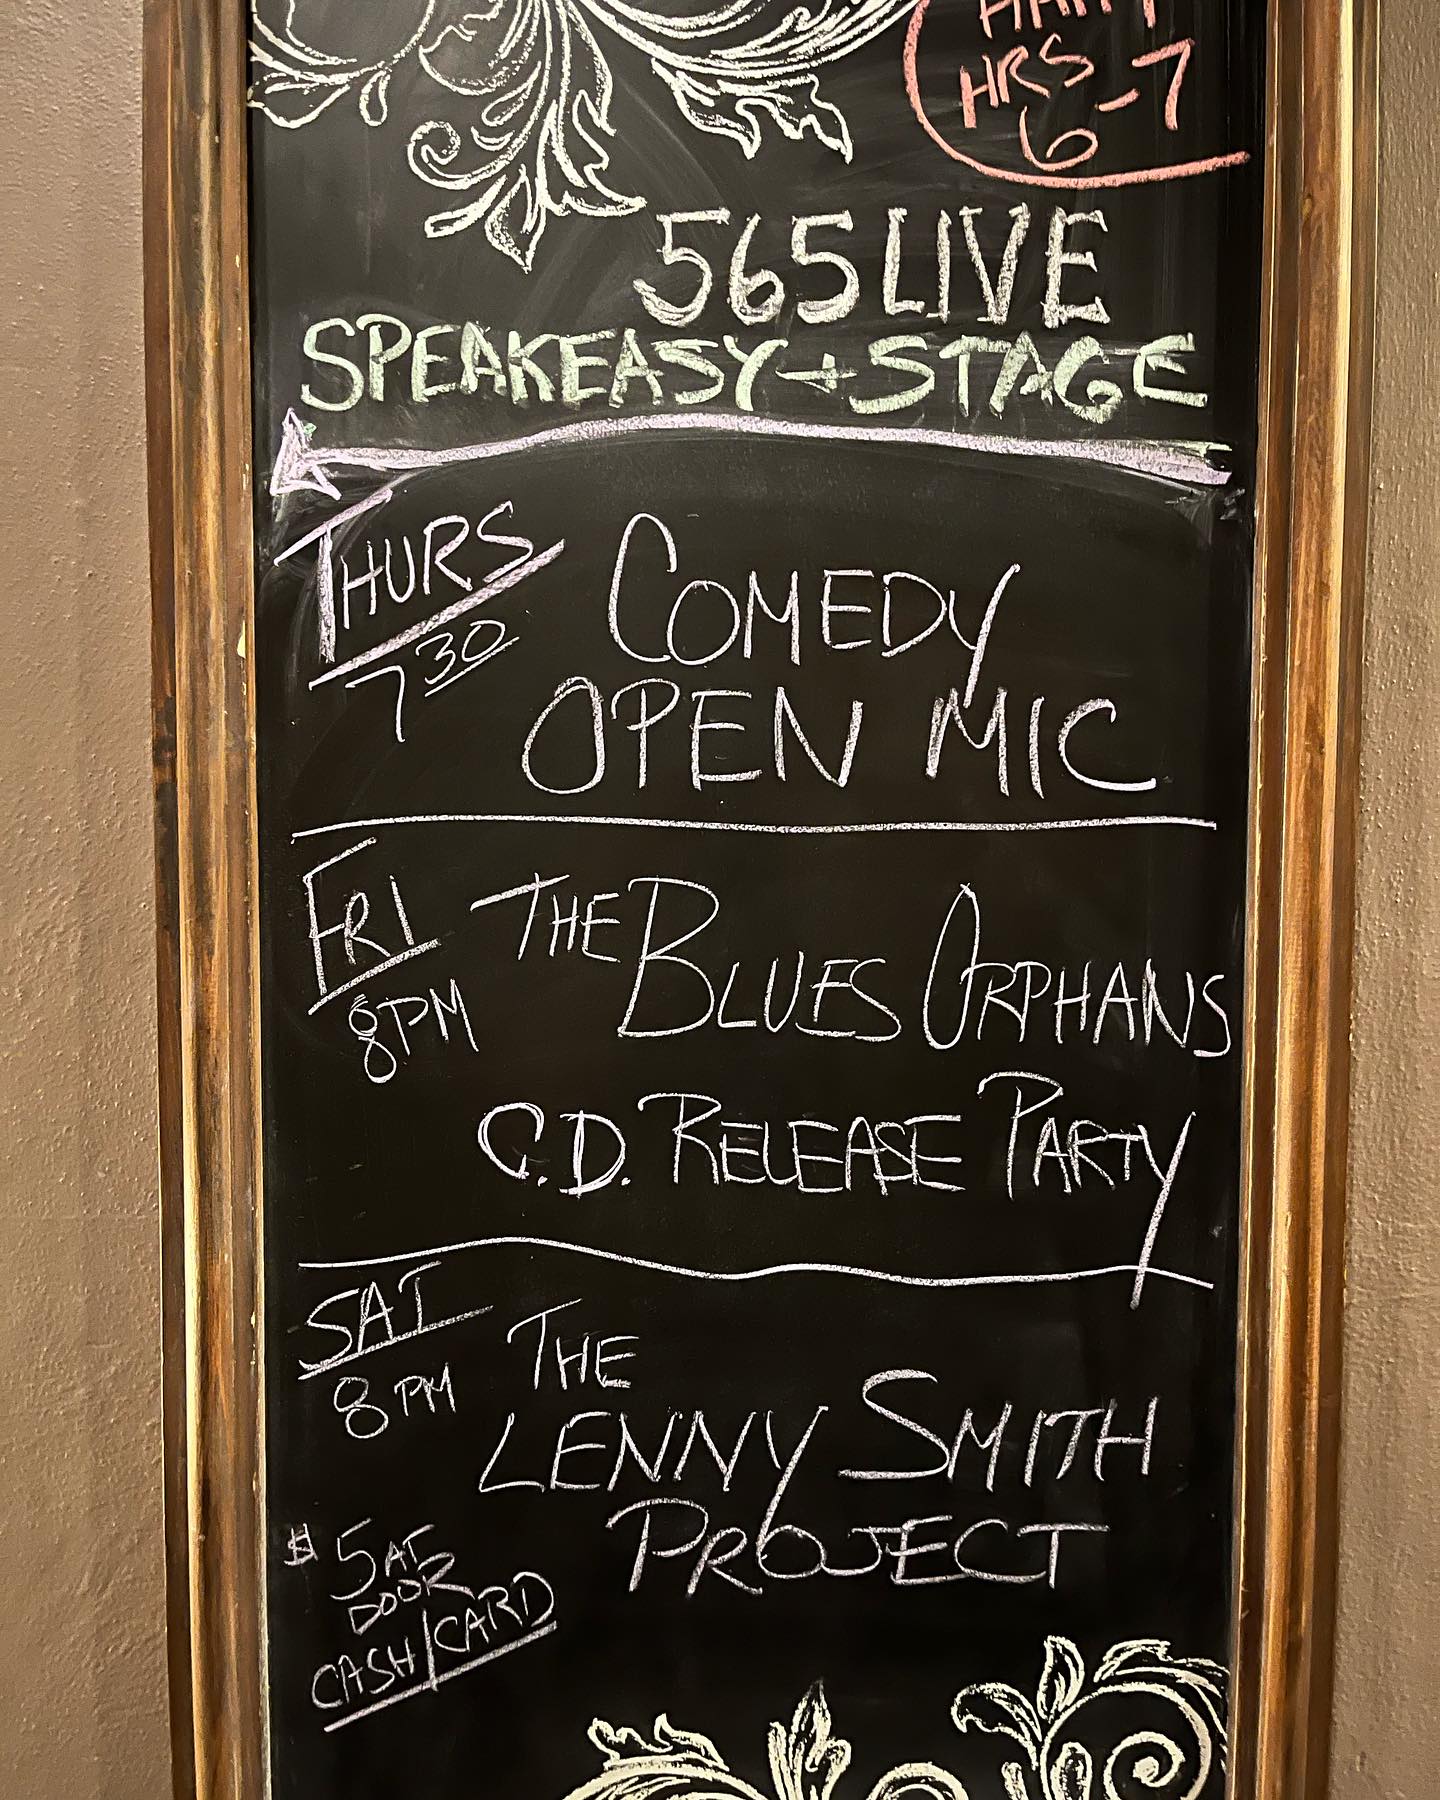 HAPPY
HRS
6-7
565 LIVE
SPEAKEASY + STAGE
THURS
7 30
COMEDY
OPEN MIC
FRI
8PM
THE BLUES ORPHANS
C.D. RELEASE PARTY
SAT
8 PM
THE
LENNY SMITH
PROJECT
$5 AT
DOOR
CASH/CARD